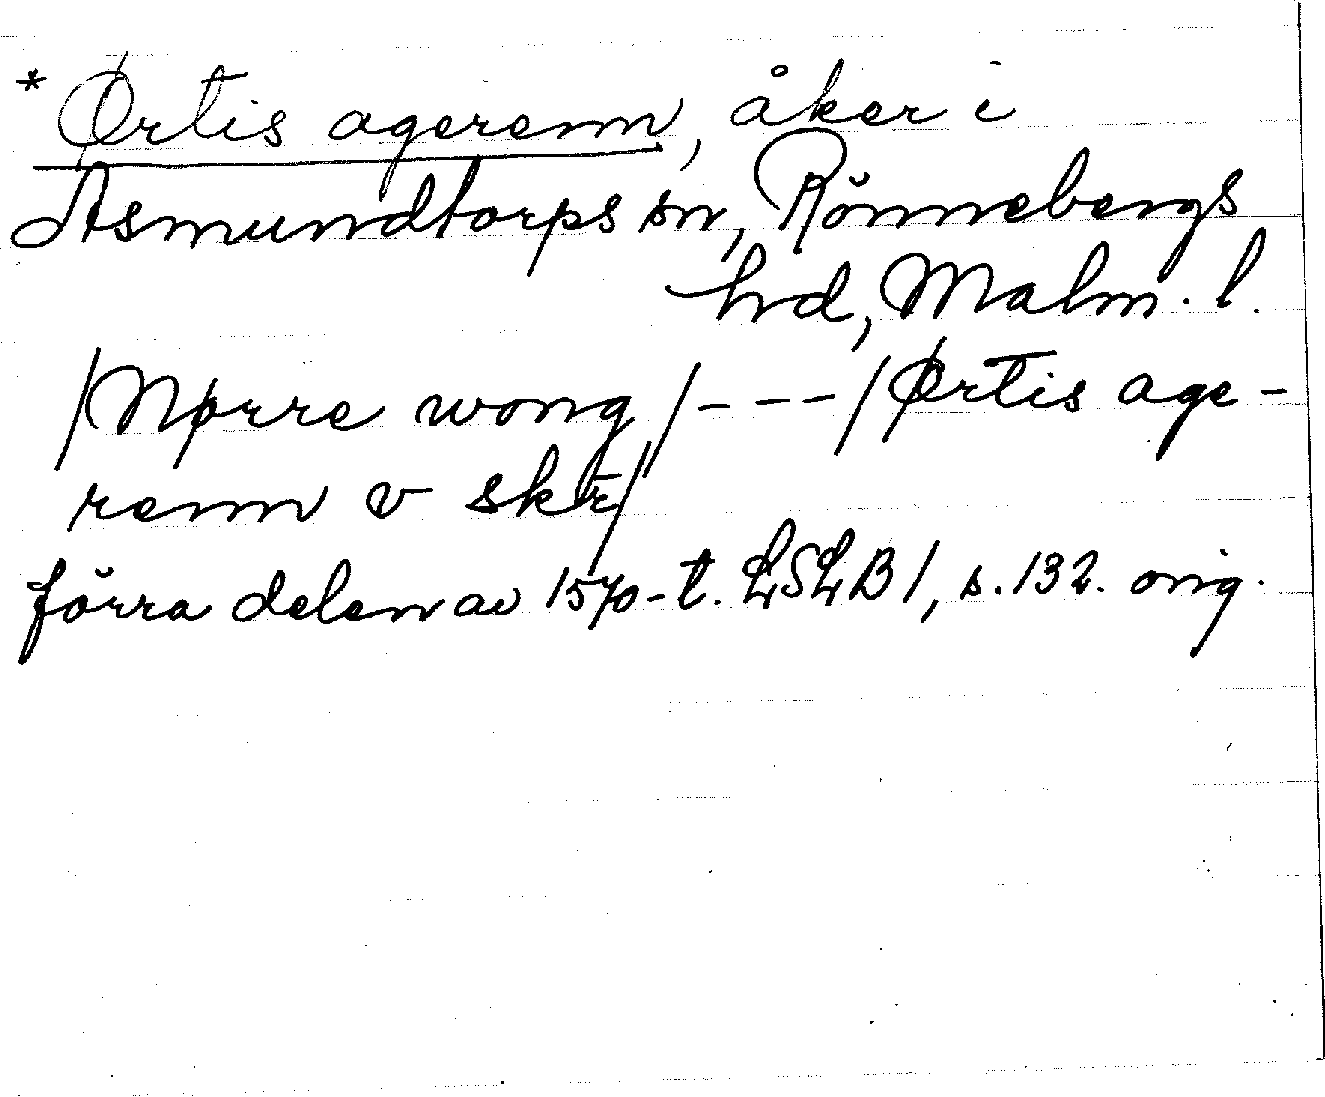 * Ørtis agerenn, åker i
Asmundtorps sn, Rönnebergs
hd, Malm. l.
/Nørre wong/---/Ørtis age-
renn v skr̄/
förra delen av 1570-t. LSLB 1, s. 132. orig.